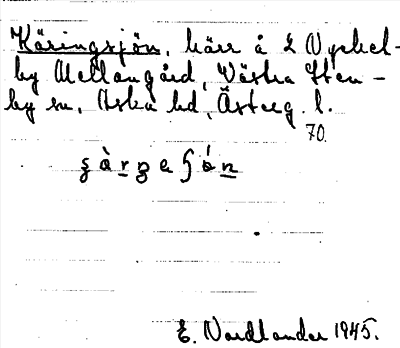 Käringsjön, kärr å 2 Nyckel-
by Mellangård, Västra Sten-
by sn, Aska hd, Österg. l.
70.
E. Nordlander 1945.